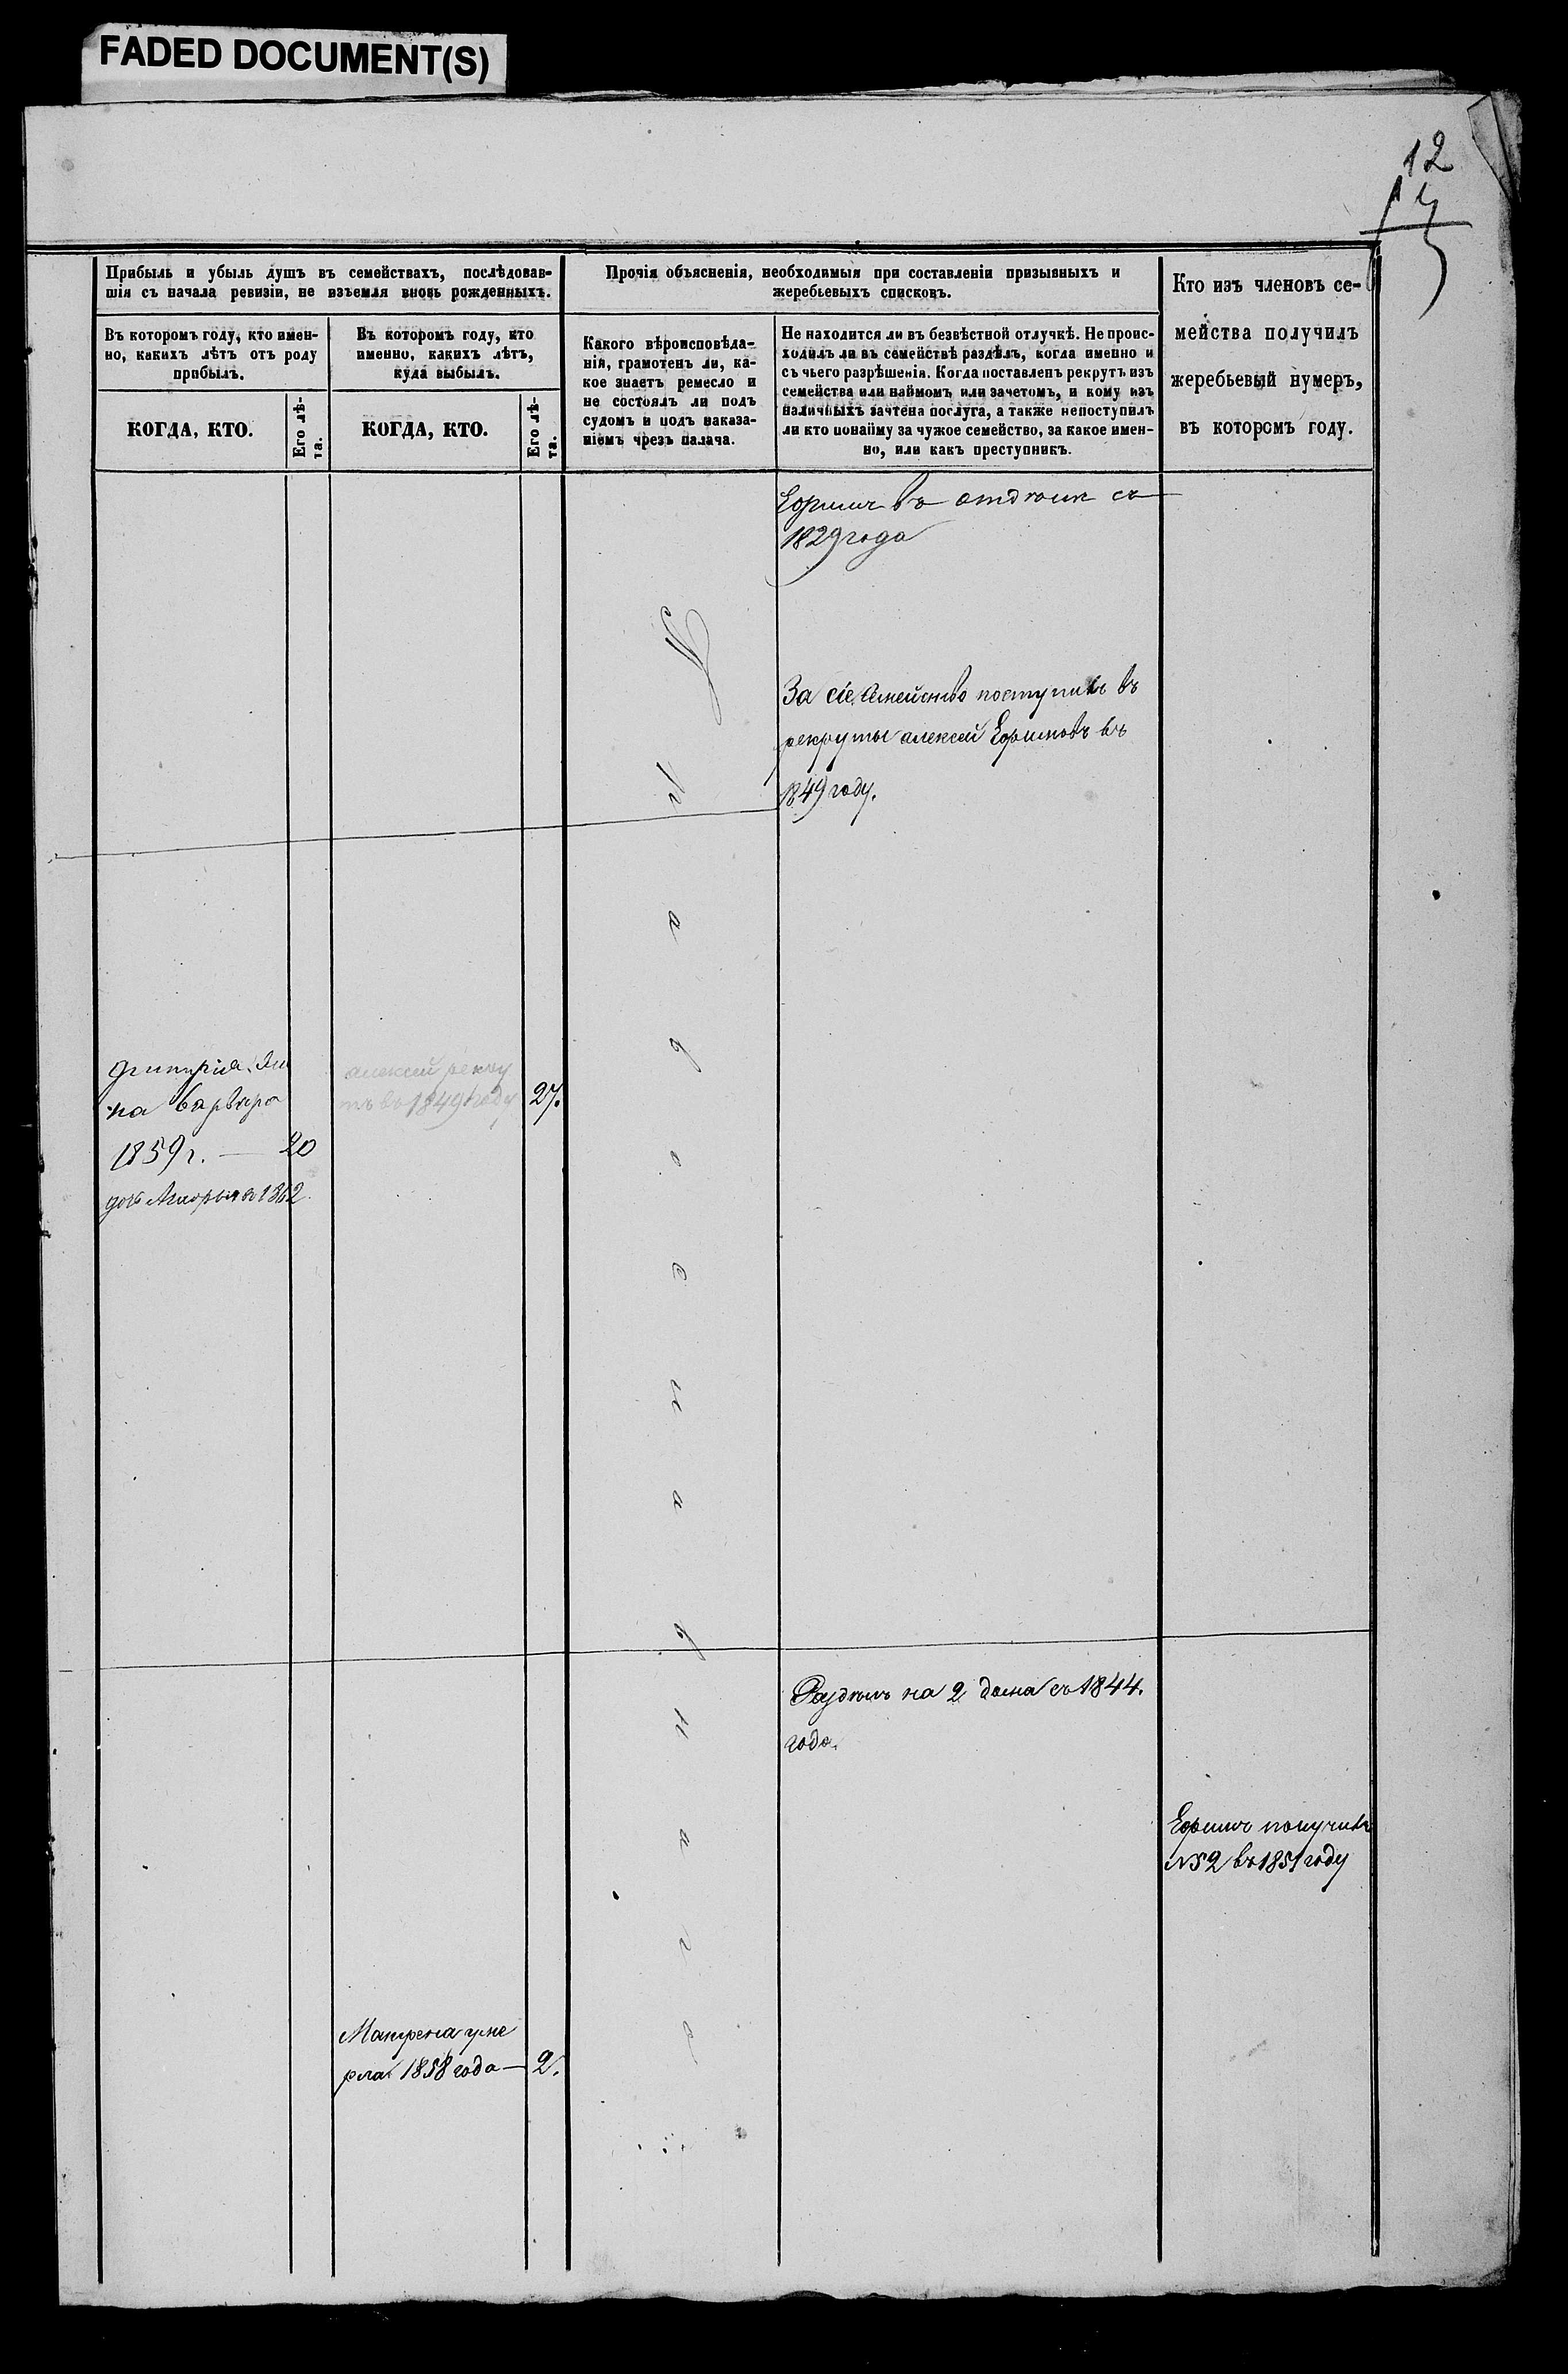 FADED DOCUMENT(S)
12
Прибыль и убыль душъ въ семействахъ, послѣдовав-
шія съ начала ревизіи, не изъемля вновь рожденныхъ.
Въ которомъ году, кто имен-
но, какихъ лѣтъ отъ роду
прибылъ.
КОГДА, КТО.
Его лѣ-
та.
Въ которомъ году, кто
именно, какихъ лѣтъ,
куда выбылъ.
КОГДА, КТО.
Его лѣ-
та.
Прочія объясненія, необходимыя при составленіи призывныхъ и
жеребьевыхъ списковъ.
Какого вѣроисповѣда-
нія, грамотенъ ли, ка-
кое знаетъ ремесло и
не состоялъ ли подъ
судомъ и подъ наказа-
ніемъ чрезъ палача.
Не находится ли въ безвѣстной отлучкѣ. Не проис-
ходилъ ли въ семействѣ раздѣлъ, когда именно и
съ чьего разрѣшенія. Когда поставленъ рекрутъ изъ
семейства или наймомъ или зачетомъ, и кому изъ
наличныхъ зачтена послуга, а также непоступилъ
ли кто понайму за чужое семейство, за какое имен-
но, или какъ преступникъ.
Кто изъ членовъ се-
мейства получилъ
жеребьевый нумеръ,
въ которомъ году.
Ефимъ въ отдѣлѣ съ
1829 года
За сіе семейство поступилъ въ
рекруты алексей Ефимовъ въ
1849 году.
П р а в о с л а в н а г о
Дмитрія
на варвара
1859 г. — 20
1862.
алексей рекру
тъ въ 1849 году 27.
Раздѣлъ на 2 дома съ 1844.
года.
Ефимъ получилъ
№ 52 въ 1851 году
Матрена уме
рла 1858 года — 2.